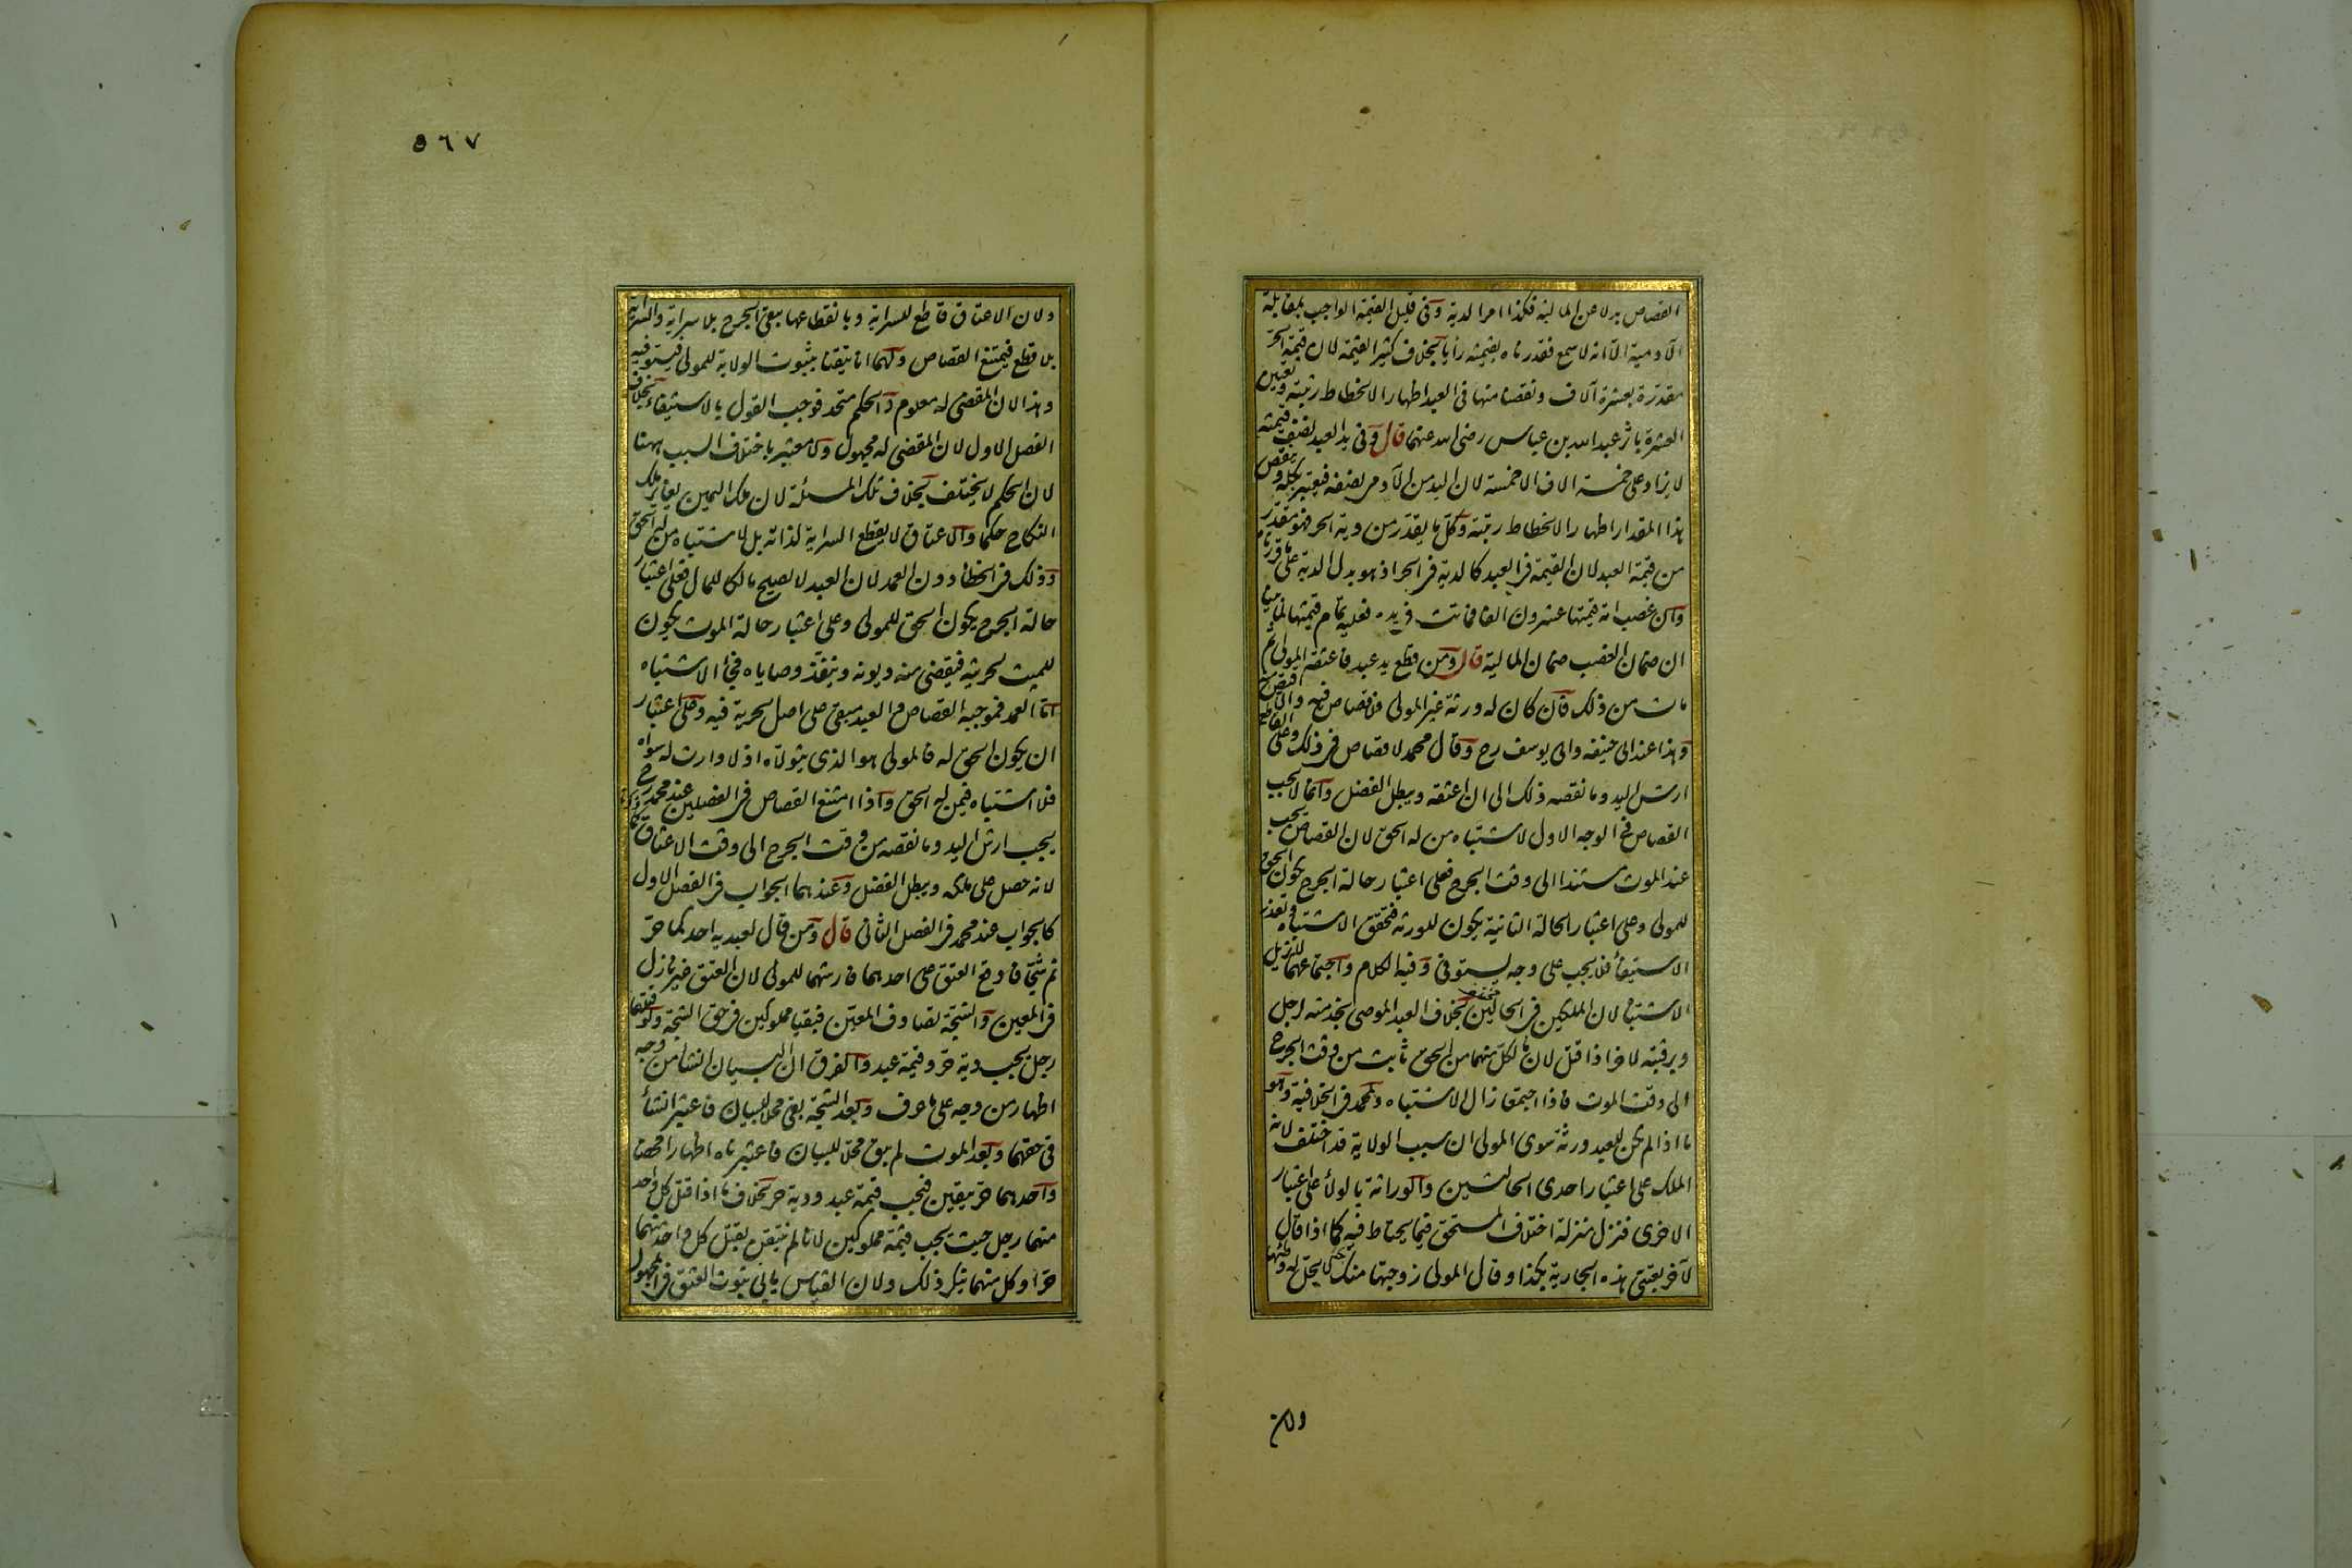 القصاص بدلا عن المالية فكذا امر الدية وفى قليل القيمة الواجب بمقابلة
الآدمية الا انه لا سمع فقدرناه بقيمته رأيا بخلاف كثير القيمة لان قيمة الحر
مقدرة بعشرة آلاف ونقصنا منها فى العبد اظهارا لانحطاط رتبته وتعيين
العشرة باثر عبد الله بن عباس رضى الله عنهما قال وفى يد العبد نصف قيمته
لا يزاد على خمسة الاف الا خمسة لان اليد من الآدمى نصفه فيعتبر بكله وينقص
هذا المقدار اظهارا لانحطاط رتبته وكل ما يقدر من دية الحر فهو مقدر
من قيمة العبد لان القيمة فى العبد كالدية فى الحر اذ هو بدل الدم على ما قررناه
وان غصب امة قيمتها عشرون الفا فماتت فى يده فعليه تمام قيمتها لما بينا
ان ضمان الغصب ضمان المالية قال ومن قطع يد عبد فاعتقه المولى ثم
مات من ذلك فان كان له ورثة غير المولى فلا قصاص فيه والا اقتص منه
وهذا عند ابى حنيفه وابى يوسف رح وقال محمد لا قصاص فى ذلك وعلى القاطع
ارش اليد وما نقصه ذلك الى ان اعتقه ويبطل الفضل وانما لا يجب
القصاص فى الوجه الاول لاشتباه من له الحق لان القصاص يجب
عند الموت مستندا الى وقت الجرح فعلى اعتبار حالة الجرح يكون الحق
للمولى وعلى اعتبار الحالة الثانية يكون للورثة فتحقق الاشتباه وتعذر
الاستيفاء فلا يجب على وجه يستوفى وفيه الكلام واجتماعهما لا يزيل
الاشتباه لان الملكين فى الحالين بخلاف العبد الموصى بخدمته لرجل
وبرقبته لاخر اذا قتل لان ما لكل منهما من الحق ثابت من وقت الجرح
الى وقت الموت فاذا اجتمعا زال الاشتباه ولمحمد فى الخلافية وهو
ما اذا لم يكن للعبد ورثة سوى المولى ان سبب الولاية قد اختلف لانه
الملك على اعتبار احدى الحالتين والوراثة بالولاء على اعتبار
الاخرى فنزل منزلة اختلاف المستحق فيما يحتاط فيه كما اذا قال
لآخر بعتنى هذه الجارية بكذا وقال المولى زوجتها منك لا يحل له وطئها
ولان
٥٦٧
ولان الاعتاق قاطع للسراية وبانقطاعها يبقى الجرح بلا سراية والسراية
بلا قطع فيمتنع القصاص ولهما انا تيقنا بثبوت الولاية للمولى فيستوفيه
وهذا لان المقضى له معلوم والحكم متحد فوجب القول بالاستيفاء بخلاف
الفصل الاول لان المقضى له مجهول ولا معتبر باختلاف السبب ههنا
لان الحكم لا يختلف بخلاف تلك المسئلة لان ملك اليمين يغاير ملك
النكاح حكما والاعتاق لا يقطع السراية لذاته بل لاشتباه من له الحق
وذلك فى الخطأ دون العمد لان العبد لا يصلح مالكا للمال فعلى اعتبار
حالة الجرح يكون الحق للمولى وعلى اعتبار حالة الموت يكون
للميت لحريته فيقضى منه ديونه وينفذ وصاياه فجاء الاشتباه
اما العمد فموجبه القصاص والعبد مبقى على اصل الحرية فيه وعلى اعتبار
ان يكون الحق له فالمولى هو الذى يتولاه اذ لا وارث له سواه
فلا اشتباه فيمن له الحق واذا امتنع القصاص فى الفصلين عند محمد رح
يجب ارش اليد وما نقصه من وقت الجرح الى وقت الاعتاق
لانه حصل على ملكه ويبطل الفضل وعندهما الجواب فى الفصل الاول
كالجواب عند محمد فى الفصل الثانى قال ومن قال لعبديه احدكما حر
ثم شجا فاوقع العتق على احدهما فارشهما للمولى لان العتق غير نازل
فى المعين والشجة تصادف المعين فبقيا مملوكين فى حق الشجة ولو قتلهما
رجل يجب دية حر وقيمة عبد والفرق ان البيان انشاء من وجه
اظهار من وجه على ما عرف وبعد الشجة بقى محلا للبيان فاعتبر انشاء
فى حقهما وبعد الموت لم يبق محلا للبيان فاعتبرناه اظهارا محضا
واحدهما حر بيقين فيجب قيمة عبد ودية حر بخلاف ما اذا قتل كل واحد
منهما رجل حيث يجب قيمة مملوكين لانا لم نتيقن بقتل كل واحد منهما
حرا وكل منهما ينكر ذلك ولان القياس يابى ثبوت العتق فى المجهول